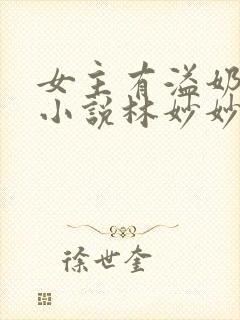 女主有溢奶
小说林妙妙
徐世奎